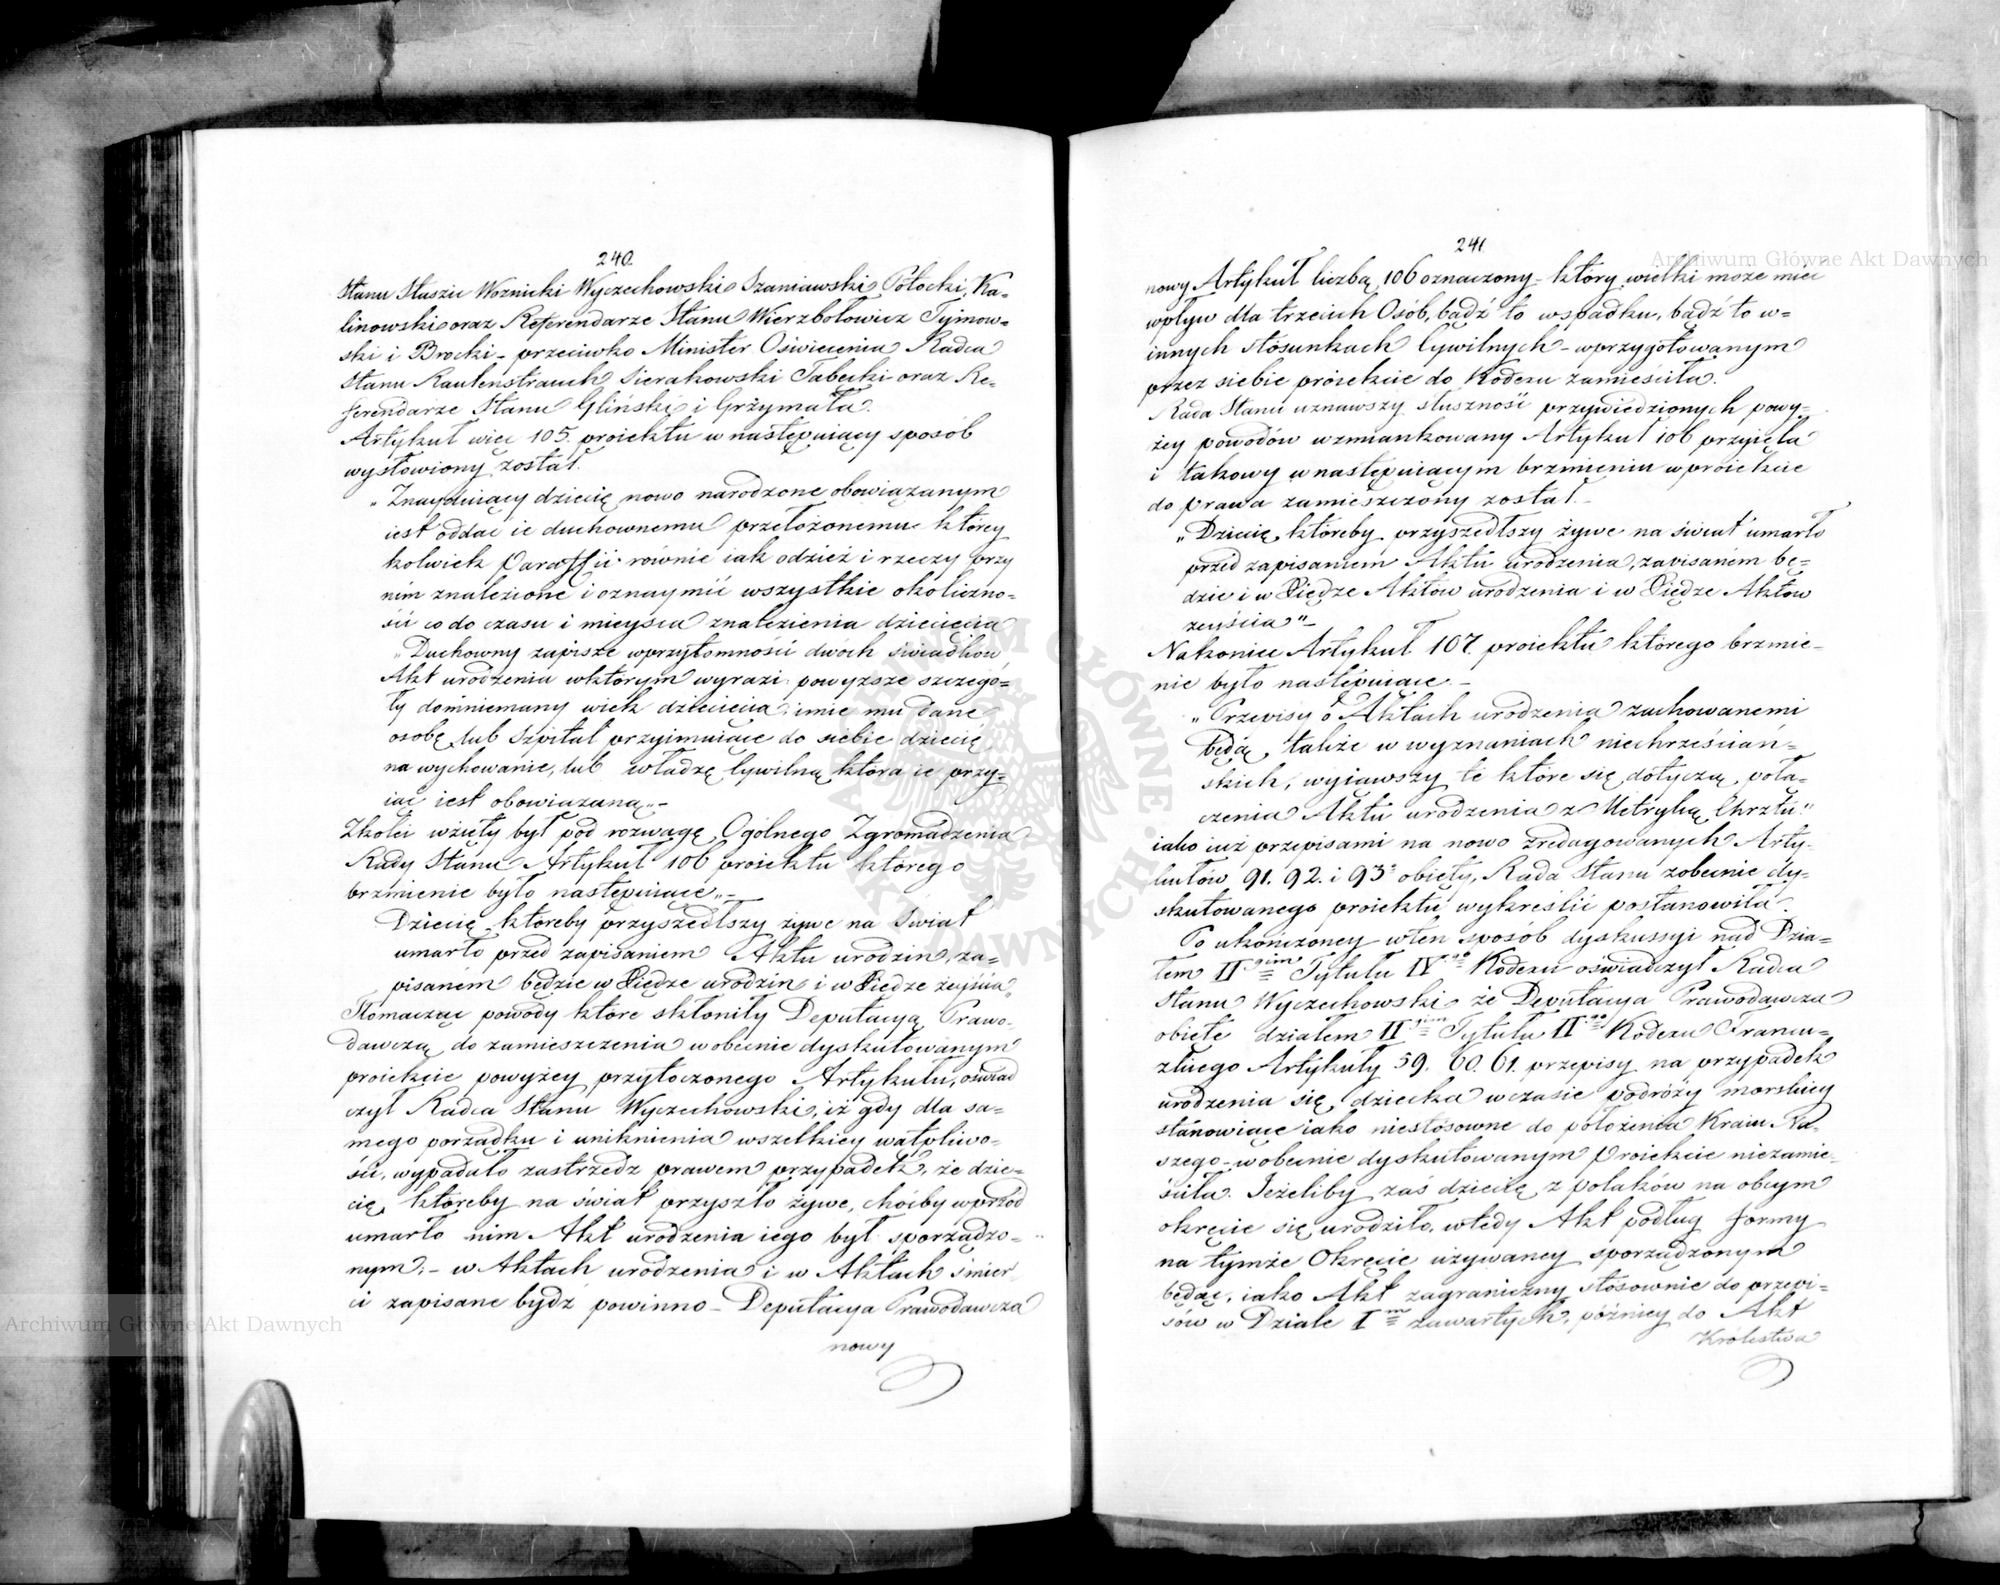 240.
Stanu Staszic Woznicki Wyczechowski Szaniawski Potocki, Ka-
linowski oraz Referendarze Stanu Wierzbołowicz Tymow-
ski i Brocki - przeciwko Minister Oświecenia Radca
Stanu Rautenstrauch Sierakowski Tabecki oraz Re-
ferendarze Stanu Gliński i Grzymała.
Artykuł więc 105. proiektu w następuiący sposób
wysłowiony został.
„Znayduiący dziecię nowo narodzone obowiązanym
iest oddać ie duchownemu przełożonemu którey
kolwiek Paraffii równie iak odzież i rzeczy przy
nim znalezione i oznaymić wszystkie okoliczno-
ści co do czasu i mieysca znalezienia dziecięcia
„Duchowny zapisze w przytomności dwóch świadków
Akt urodzenia w którym wyrazi powyższe szczegó-
ły domniemany wiek dziecięcia imie mu dane
osobę lub Szpital przyimuiące do siebie dziecię
na wychowanie, lub władzę Cywilną która ie przy-
iąć iest obowiązaną„-
Zkolei wzięty był pod rozwagę Ogólnego Zgromadzenia
Rady Stanu Artykuł 106 proiektu którego
brzmienie było następuiące„-
Dziecię któreby przyszedłszy żywe na Świat
umarło przed zapisaniem Aktu urodzin, za-
pisaném będzie w Xiędze urodzin i w Xiędze zeyścia„
Tłomacząc powody które skłoniły Deputacyą Prawo-
dawczą do zamieszczenia w obecnie dyskutowanym
proiekcie powyżey przytoczonego Artykułu, oświad
czył Radca Stanu Wyczechowski, iż gdy dla sa-
mego porządku i uniknienia wszelkiey wątpliwo-
ści, wypadało zastrzedz prawem przypadek, że dzie-
cię, któreby na świat przyszło żywe, choćby wprzód
umarło nim Akt urodzenia iego był sporządzo-
nym;- w Aktach urodzenia i w Aktach śmier
ci zapisane bydz powinno - Deputacya Prawodawcza
nowy
241
nowy Artykuł liczbą 106 oznaczony - który wielki może mieć
wpływ dla trzecich Osób, bądź to w spadku, bądź to w-
innych stósunkach Cywilnych - w przygotowanym
przez siebie proiekcie do Kodexu zamieściła.
Rada Stanu uznawszy słuszność przywiedzionych powy-
żey powodów wzmiankowany Artykuł 106 przyięła
i takowy w następuiącym brzmieniu w proiekcie
do prawa zamieszczony został.-
„Dziecię, któreby przyszedłszy żywe na świat umarło
przed zapisaniem Aktu urodzenia, zapisaném bę-
dzie i w Xiędze Aktów urodzenia i w Xiędze Aktów
zeyścia"-
Nakoniec Artykuł 107 proiektu którego brzmie-
nie było następuiące.-
„Przepisy o Aktach urodzenia zachowanemi
będą, także w wyznaniach niechrześciań-
skich, wyiąwszy te które się dotyczą, połą-
czenia Aktu urodzenia z Metryką Chrztu"
iako iuż przepisami na nowo zredagowanych Arty-
kułów 91. 92. i 93º obięty, Rada Stanu z obecnie dy-
skutowanego proiektu wykreślić postanowiła.
Po ukończoney w ten sposób dyskussyi nad Dzia-
łem IIgim Tytułu IVgo Kodexu oświadczył Radca
Stanu Wyczechowski że Deputacya Prawodawcza
obięte działem IIgim Tytułu IIgo Kodexu Francu-
zkiego Artykuły 59. 60. 61. przepisy na przypadek
urodzenia się dziecka w czasie podróży morskiey
stanowiące iako niestósowne do położenia Kraiu Na-
szego - w obecnie dyskutowanym Proiekcie niezamie-
ściła. Jeżeliby zaś dziecię z polaków na obcym
okręcie się urodziło, wtedy Akt podług formy
na tymże Okręcie używaney sporządzonym
będąc, iako Akt zagraniczny stósownie do przepi-
sów w Dziale Im zawartych, późniey do Akt
Królestwa